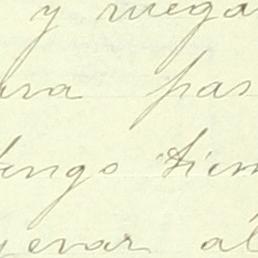 y ruega
ara pas
tengo tiem
yerar al